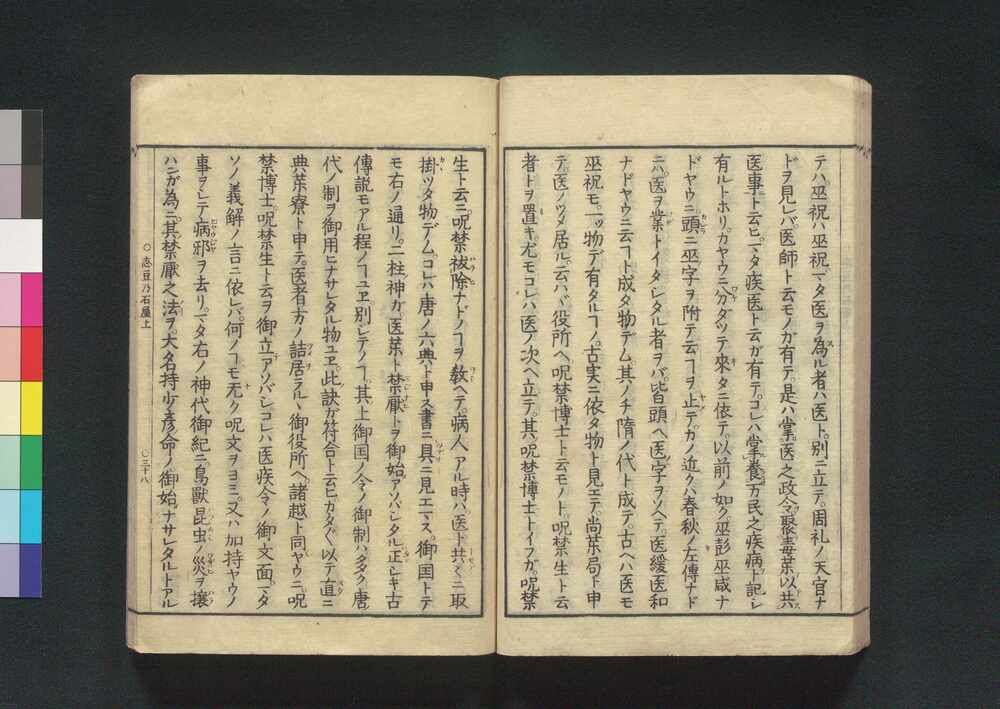 テハ巫祝ハ巫祝マタ医ヲ為ル者ハ医ト別ニ立テ周礼ノ天官ナ
ドヲ見レバ医師ト云モノガ有テ是ハ掌医之政令聚毒薬以共
医事ト云ヒマタ疾医ト云ガ有テコレハ掌養万民之疾病ト記シ
有ルトホリカヤウニ分ダツテ來タニ依テ以前ノ如ク巫彭巫咸ナ
ドヤウニ頭ニ巫字ヲ附テ云ヿヲ止テカノ近クハ春秋ノ左傳ナド
ニハ医ヲ業トイタシタル者ヲバ皆頭ヘ医字ヲソヘテ医緩医和
ナドヤウニ云ヿト成タ物デム其ノチ隋ノ代ト成テ古ヘハ医モ
巫祝モ一ッ物デ有タルヿノ古実ニ依タ物ト見エテ尚薬局ト申
テ医ノツメ居ル云ハヾ役所ヘ呪禁博士ト云モノト呪禁生ト云
者トヲ置キ尤モコレハ医ノ次ヘ立テ其呪禁博士トイフガ呪禁
生ト云ニ呪禁祓除ナドノヿヲ敎ヘテ病人アル時ハ医ト共〻ニ取
掛ツタ物デムコレハ唐ノ六典ト申ス書ニ具ニ見エマス御国トテ
モ右ノ通リ二柱神ガ医薬ト禁厭トヲ御始アソバシタル正シキ古
傳説モアル程ノヿユヱ別シテノヿ其上御国ノ令ノ御制ハ多ク唐
代ノ制ヲ御用ヒナサレタル物ユヱ此訣ガ符合ト云ヒカタ〴〵以テ直ニ
典薬寮ト申テ医者方ノ詰居ラルヽ御役所ヘ諸越ト同ヤウニ呪
禁博士呪禁生ト云ヲ御立アソバシコレハ医疾令ノ御文面マタ
ソノ義解ノ言ニ依レバ何ノヿモ无ク呪文ヲヨミ又ハ加持ヤウノ
事ヲシテ病邪ヲ去リマタ右ノ神代御紀ニ鳥獸昆虫ノ災ヲ攘
ハンガ為ニ其禁厭之法ヲ大名持少彦命ノ御始ナサレタルトアル
○志豆乃石屋上
○三十八